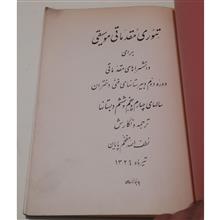 تئوری مقدماتی موسیقی
برای
دانشسراهای مقدماتی
دوره دوم دبیرستانهای فنی دختران
سالهای چهارم پنجم و ششم دبستانها
ترجمه و نگارش
لطف الله مفخم پایان
تیر ماه ۱۳۲۴